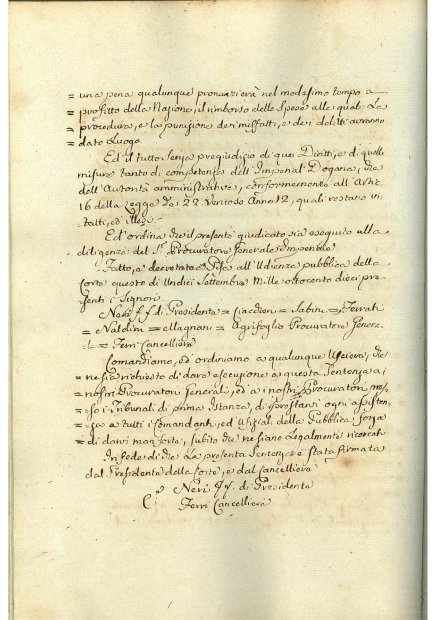 = una pena qualunque pronunzierà nel medesimo tempo a
= profitto della Nazione, il rimborso delle Spese alle quali La
= procedura, e la punizione dei misfatti, e dei delitti avranno
= dato Luogo.
Ed il tutto senza pregiudizio di quei Diritti, e di quelle
misure tanto di competenza dell'Imperial Dogana, che
dell'Autorità amministrative, conformemente all'Artic.
16 della Legge de 22 Ventoso Anno 12, quali restano
salvi, ed illesi.
Ed Ordina che il presente giudicato sia eseguito alla
diligenza del Sr. Procuratore Generale Imperiale
Fatto, e decretato a Pisa all'Udienza pubblica della
Corte questo dì Undici Settembre Mille ottocento dieci pre-
senti i Signori
Neri ff. di Presidente = Sabini = Ferrati
= Naldini = = Agrifoglio Procuratore Genera-
le = Ferri Cancelliere
Comandiamo, ed ordiniamo a qualunque Usciere, che
ne sia richiesto di dare esecuzione a questa Sentenza, ai
nostri Procuratori Generali, ed a i nostri Procuratori pres-
so i Tribunali di prima Istanza, di prestarvi ogni assisten-
za, a tutti i Comandanti, ed Ufiziali della Pubblica forza
di darvi man forte, subito che ne siano Legalmente ricercati
In fede di che La presente Sentenza è stata firmata
dal Presidente della Corte, e dal Cancelliere
Neri ff. di Presidente
Ferri Cancelliere